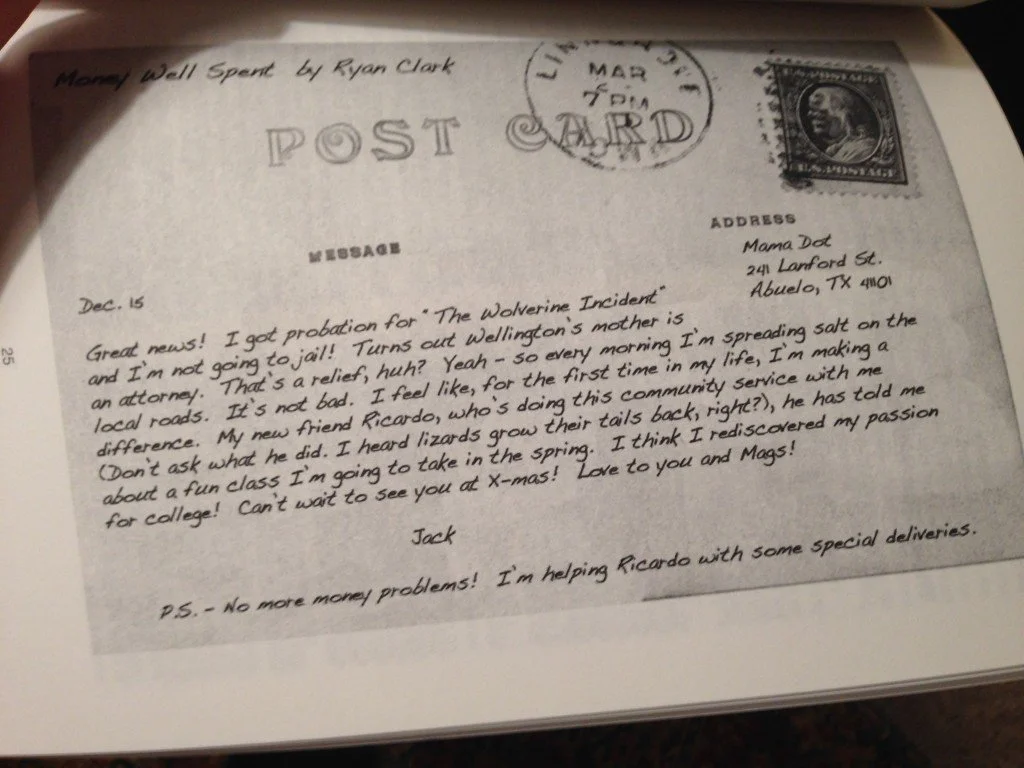 Money Well Spent by Ryan Clark
MAR
7 PM
POST CARD
U.S. POSTAGE
U.S. POSTAGE
MESSAGE
ADDRESS
Mama Dot
241 Lanford St.
Abuelo, TX 41101
Dec. 15
Great news! I got probation for "The Wolverine Incident"
and I'm not going to jail! Turns out Wellington's mother is
an attorney. That's a relief, huh? Yeah - so every morning I'm spreading salt on the
local roads. It's not bad. I feel like, for the first time in my life, I'm making a
difference. My new friend Ricardo, who's doing this community service with me
(Don't ask what he did. I heard lizards grow their tails back, right?), he has told me
about a fun class I'm going to take in the spring. I think I rediscovered my passion
for college! Can't wait to see you at X-mas! Love to you and Mags!
Jack
P.S. - No more money problems! I'm helping Ricardo with some special deliveries.
25